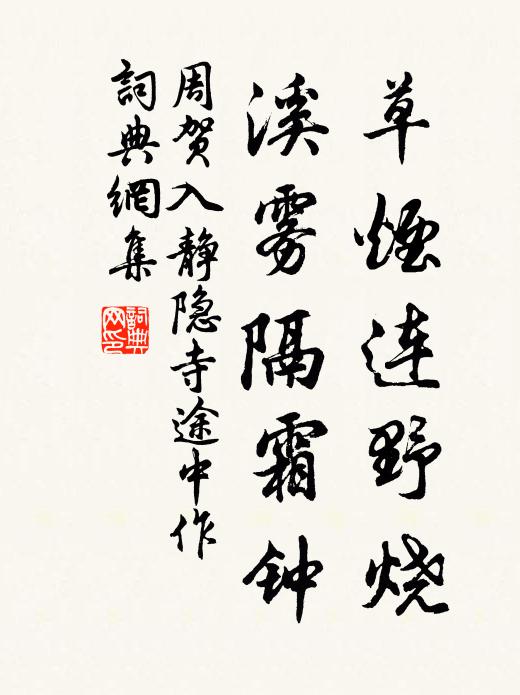 草煙连野烧
溪雾隔霜钟
周贺入静隐寺途中作
詞典網集
詞典
网印